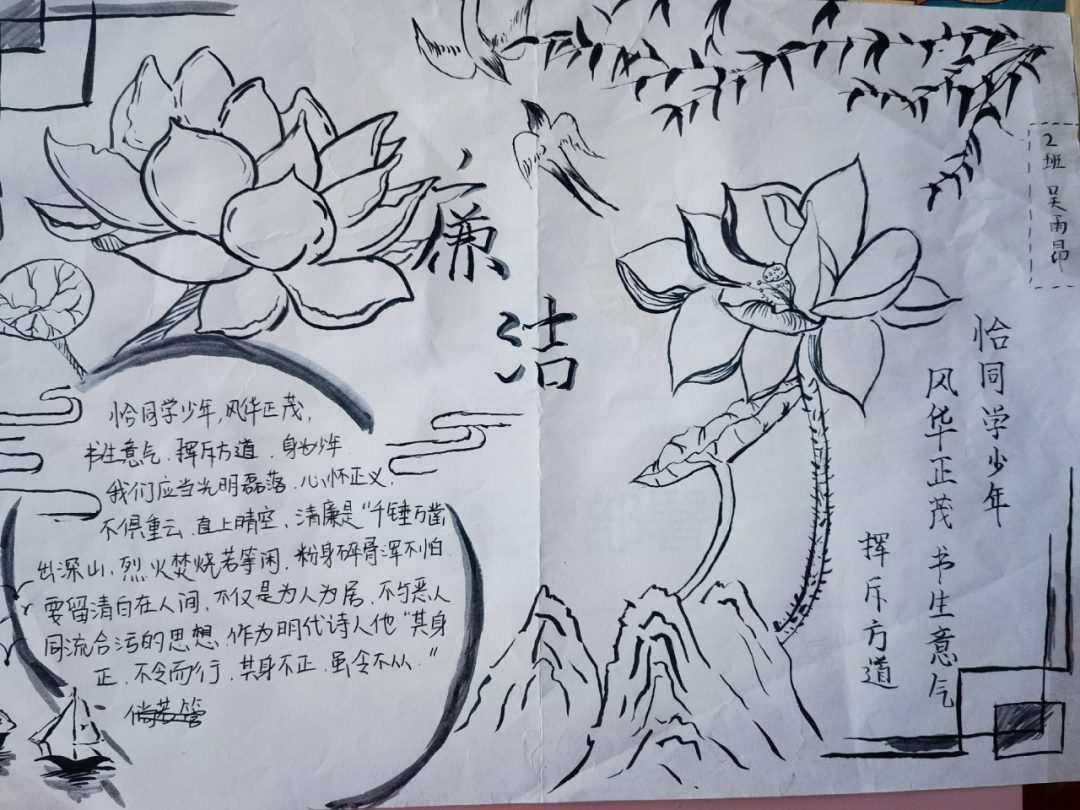 廉
洁
2班 吴雨昂
恰同学少年
风华正茂 书生意气
挥斥方道
恰同学少年,风华正茂,
书生意气,挥斥方道,身为少年
我们应当光明磊落,心怀正义,
不俱重云,直上晴空,清廉是“千锤万凿
出深山,烈火焚烧若等闲,粉身碎骨浑不怕
要留清白在人间,不仅是为人为居,不与恶人
同流合污的思想,作为明代诗人他“其身
正,不令而行,其身不正,虽令不从.”